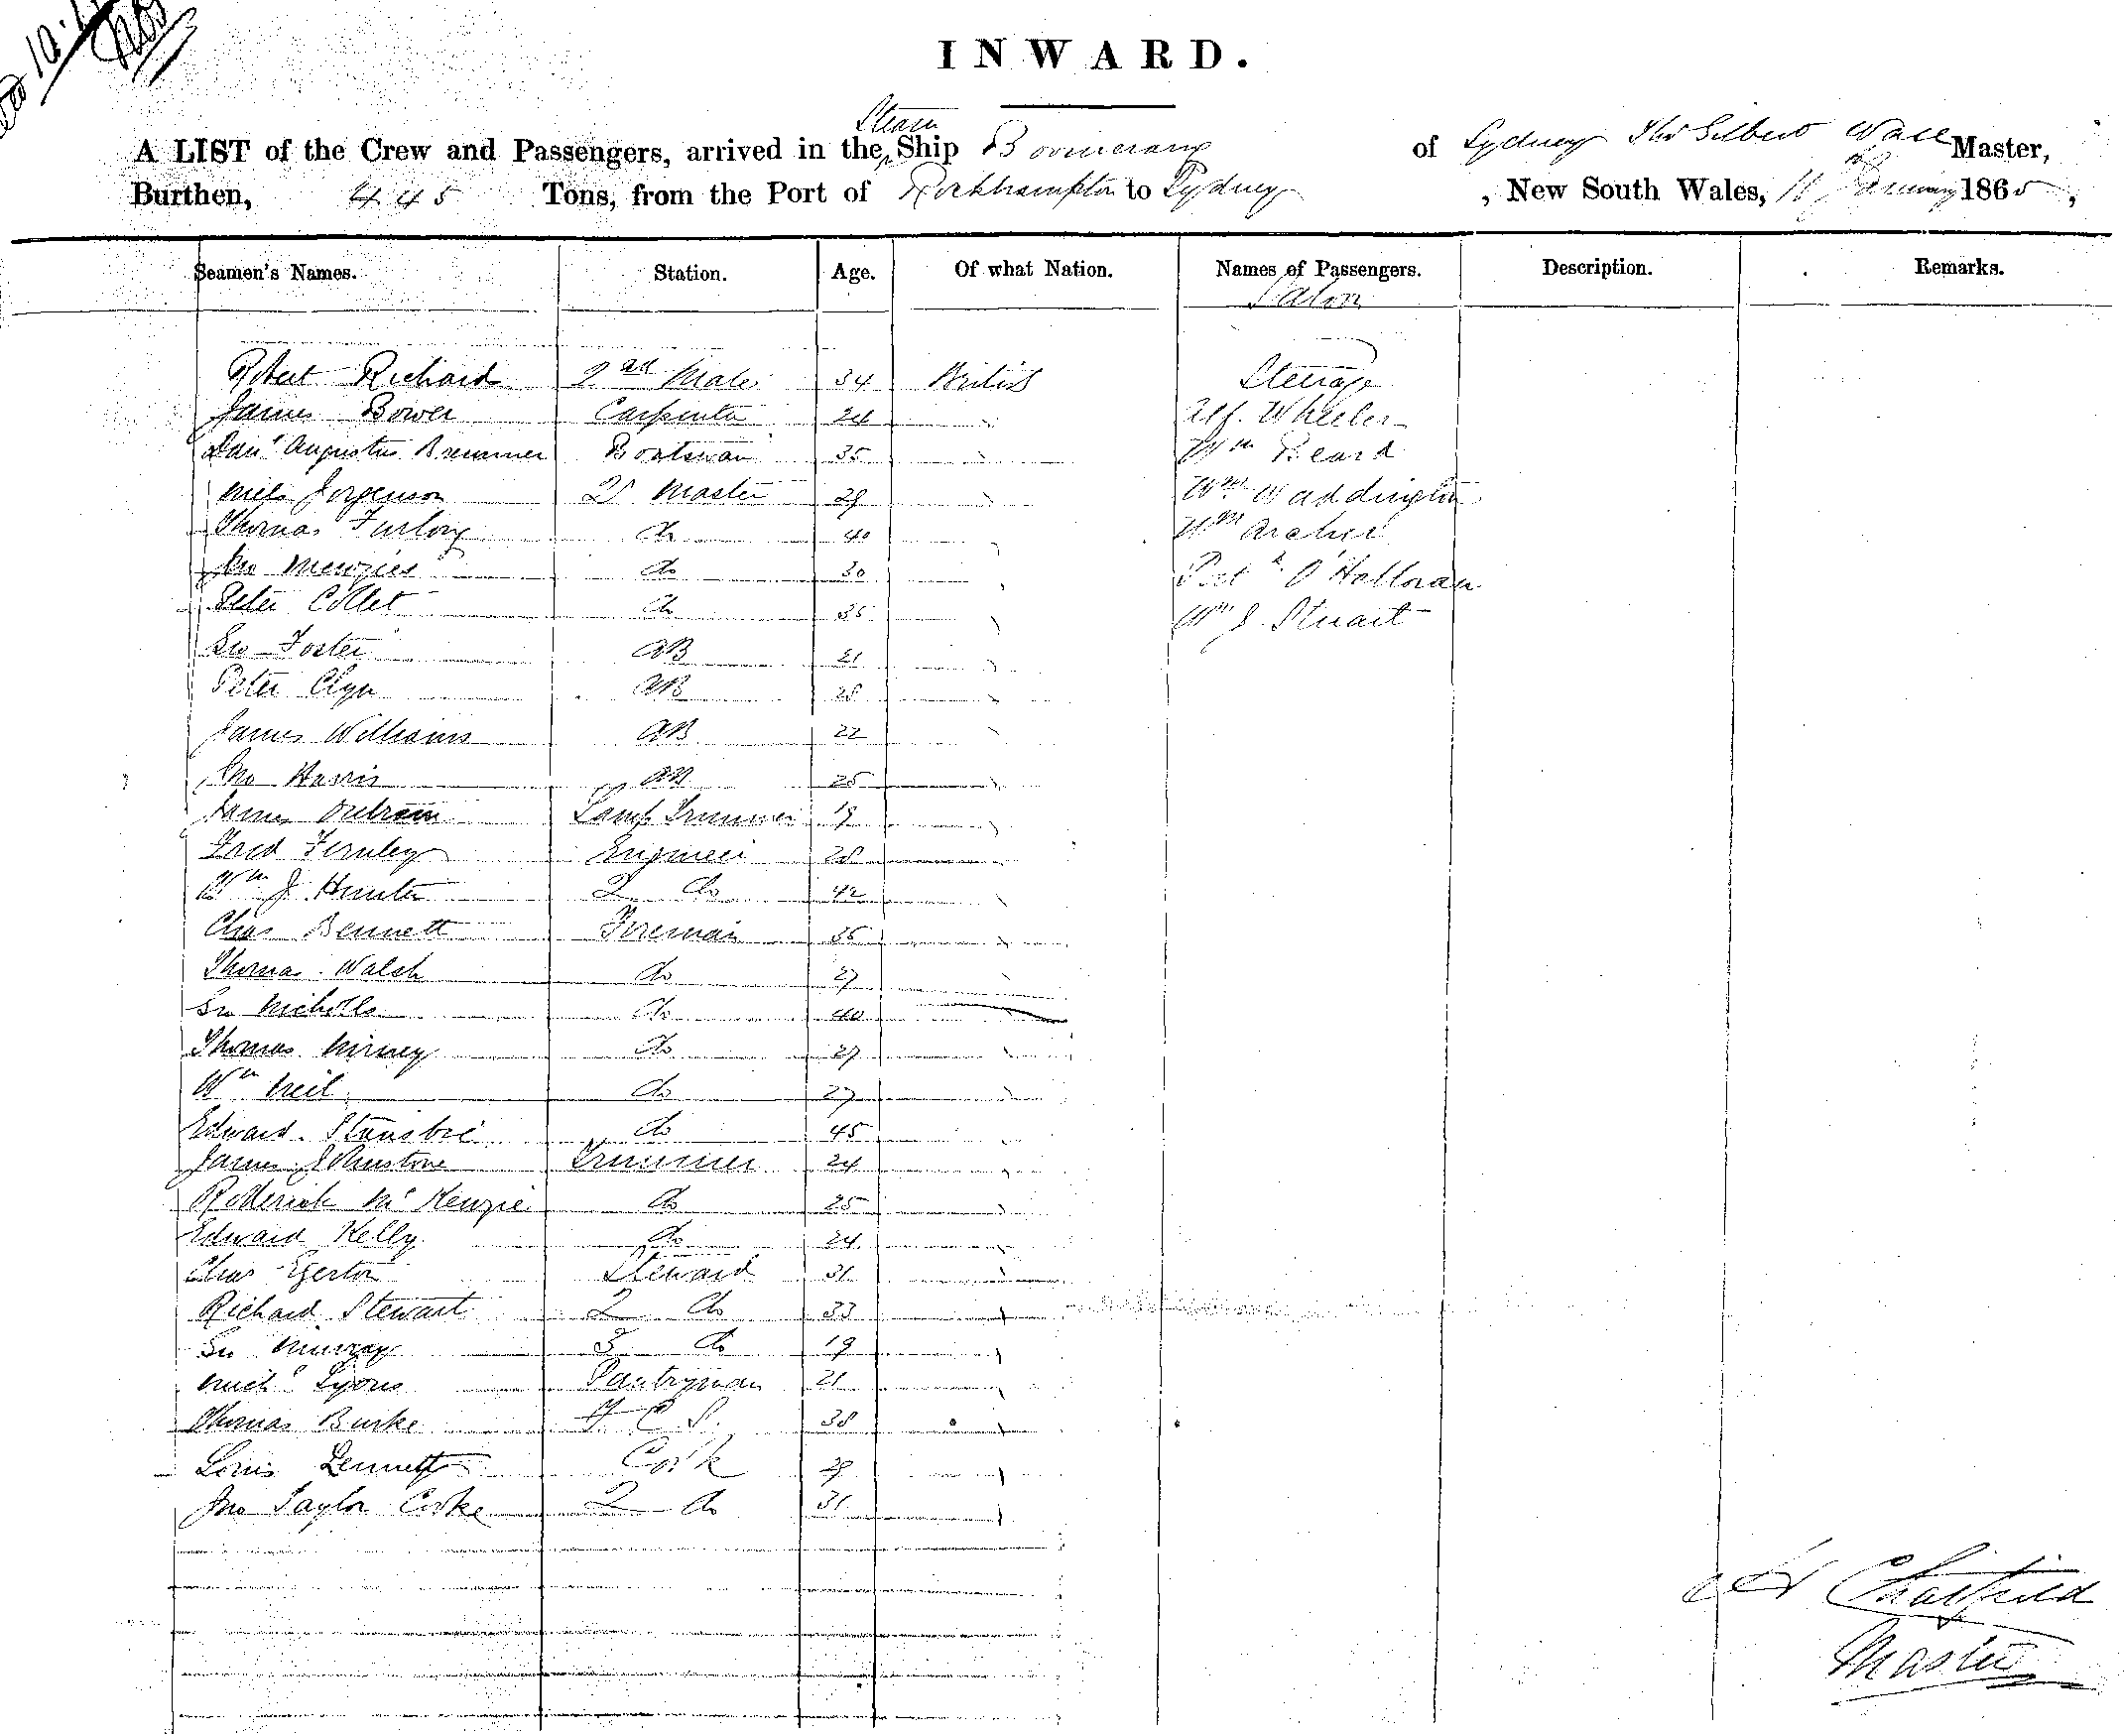 INWARD.
Steam
A LIST of the Crew and Passengers, arrived in the Ship Boomerang of Sydney Thos Gilbert Master,
Burthen, 445 Tons, from the Port of Rockhampton to Sydney, New South Wales, 11 January 1865,
Seamen's Names. Station. Age. Of what Nation. Names of Passengers. Description. Remarks.
Salon
Robert Richards 2nd Mate 34 British Steerage
James Bower Carpenter 24 " Alf. Wheeler
Danl Augustus Bremner Boatswain 35 " Wm Beard
Niels Jorgenson Qr Master 29 " Wm Waddington
Thomas Furlong do 40 " Wm Archer
Jno Menzies do 30 " Patk O'Halloran
Peter Collet do 35 " Wm J. Stuart
Geo Foster AB 21 "
Peter AB 28 "
James Williams AB 22 "
Jno Harris AB 25 "
James Outram Lamp Trimmer 19 "
Fred Fernley Engineer 28 "
Wm J Hunter 2 do 42 "
Chas Bennett Fireman 35 "
Thomas Walsh do 27 "
Geo Nicholls do 40 "
Thomas do 27 "
Wm Neil do 27 "
Edward do 45 "
James Johnstone Trimmer 24 "
Roderick McKenzie do 25 "
Edward Kelly do 24 "
Chas Egerton Steward 31 "
Richard Stewart 2 do 33 "
Geo Murray 3 do 19 "
Michl Lyons Pantryman 21 "
Thomas Burke F C S. 38 "
Louis Cook 29 "
Jno Taylor Cooke 2 do 31 "
Chatfield
Master